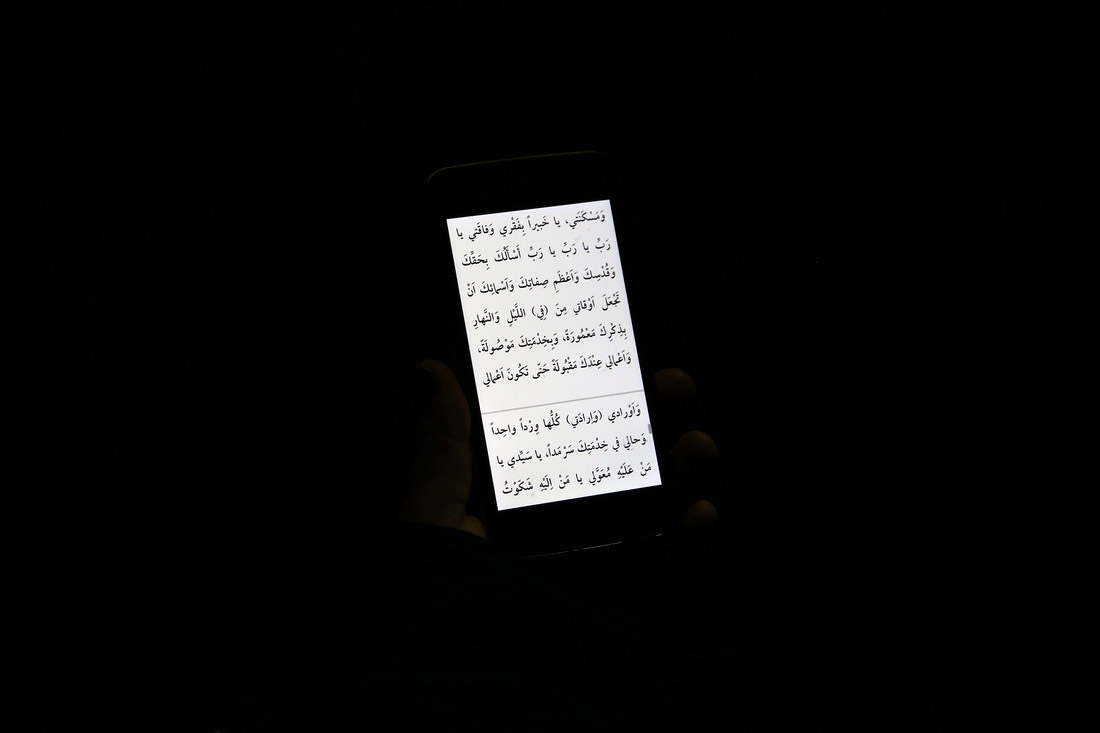 وَمَسْكَنَتي، يا خَبيراً بِفَقْري وَفاقَتي يا
رَبِّ يا رَبِّ يا رَبِّ أَسْأَلُكَ بِحَقِّكَ
وَقُدْسِكَ وَاَعْظَمِ صِفاتِكَ وَاَسْمائِكَ اَنْ
تَجْعَلَ اَوْقاتي مِنَ (في) اللَّيْلِ وَالنَّهارِ
بِذِكْرِكَ مَعْمُورَةً، وَبِخِدْمَتِكَ مَوْصُولَةً،
وَاَعْمالي عِنْدَكَ مَقْبُولَةً حَتّى تَكُونَ اَعْمالي
وَاَوْرادي (وَاِرادَتي) كُلُّها وِرْداً واحِداً
وَحالي في خِدْمَتِكَ سَرْمَداً، يا سَيِّدي يا
مَنْ عَلَيْهِ مُعَوَّلي يا مَنْ اِلَيْهِ شَكَوْتُ